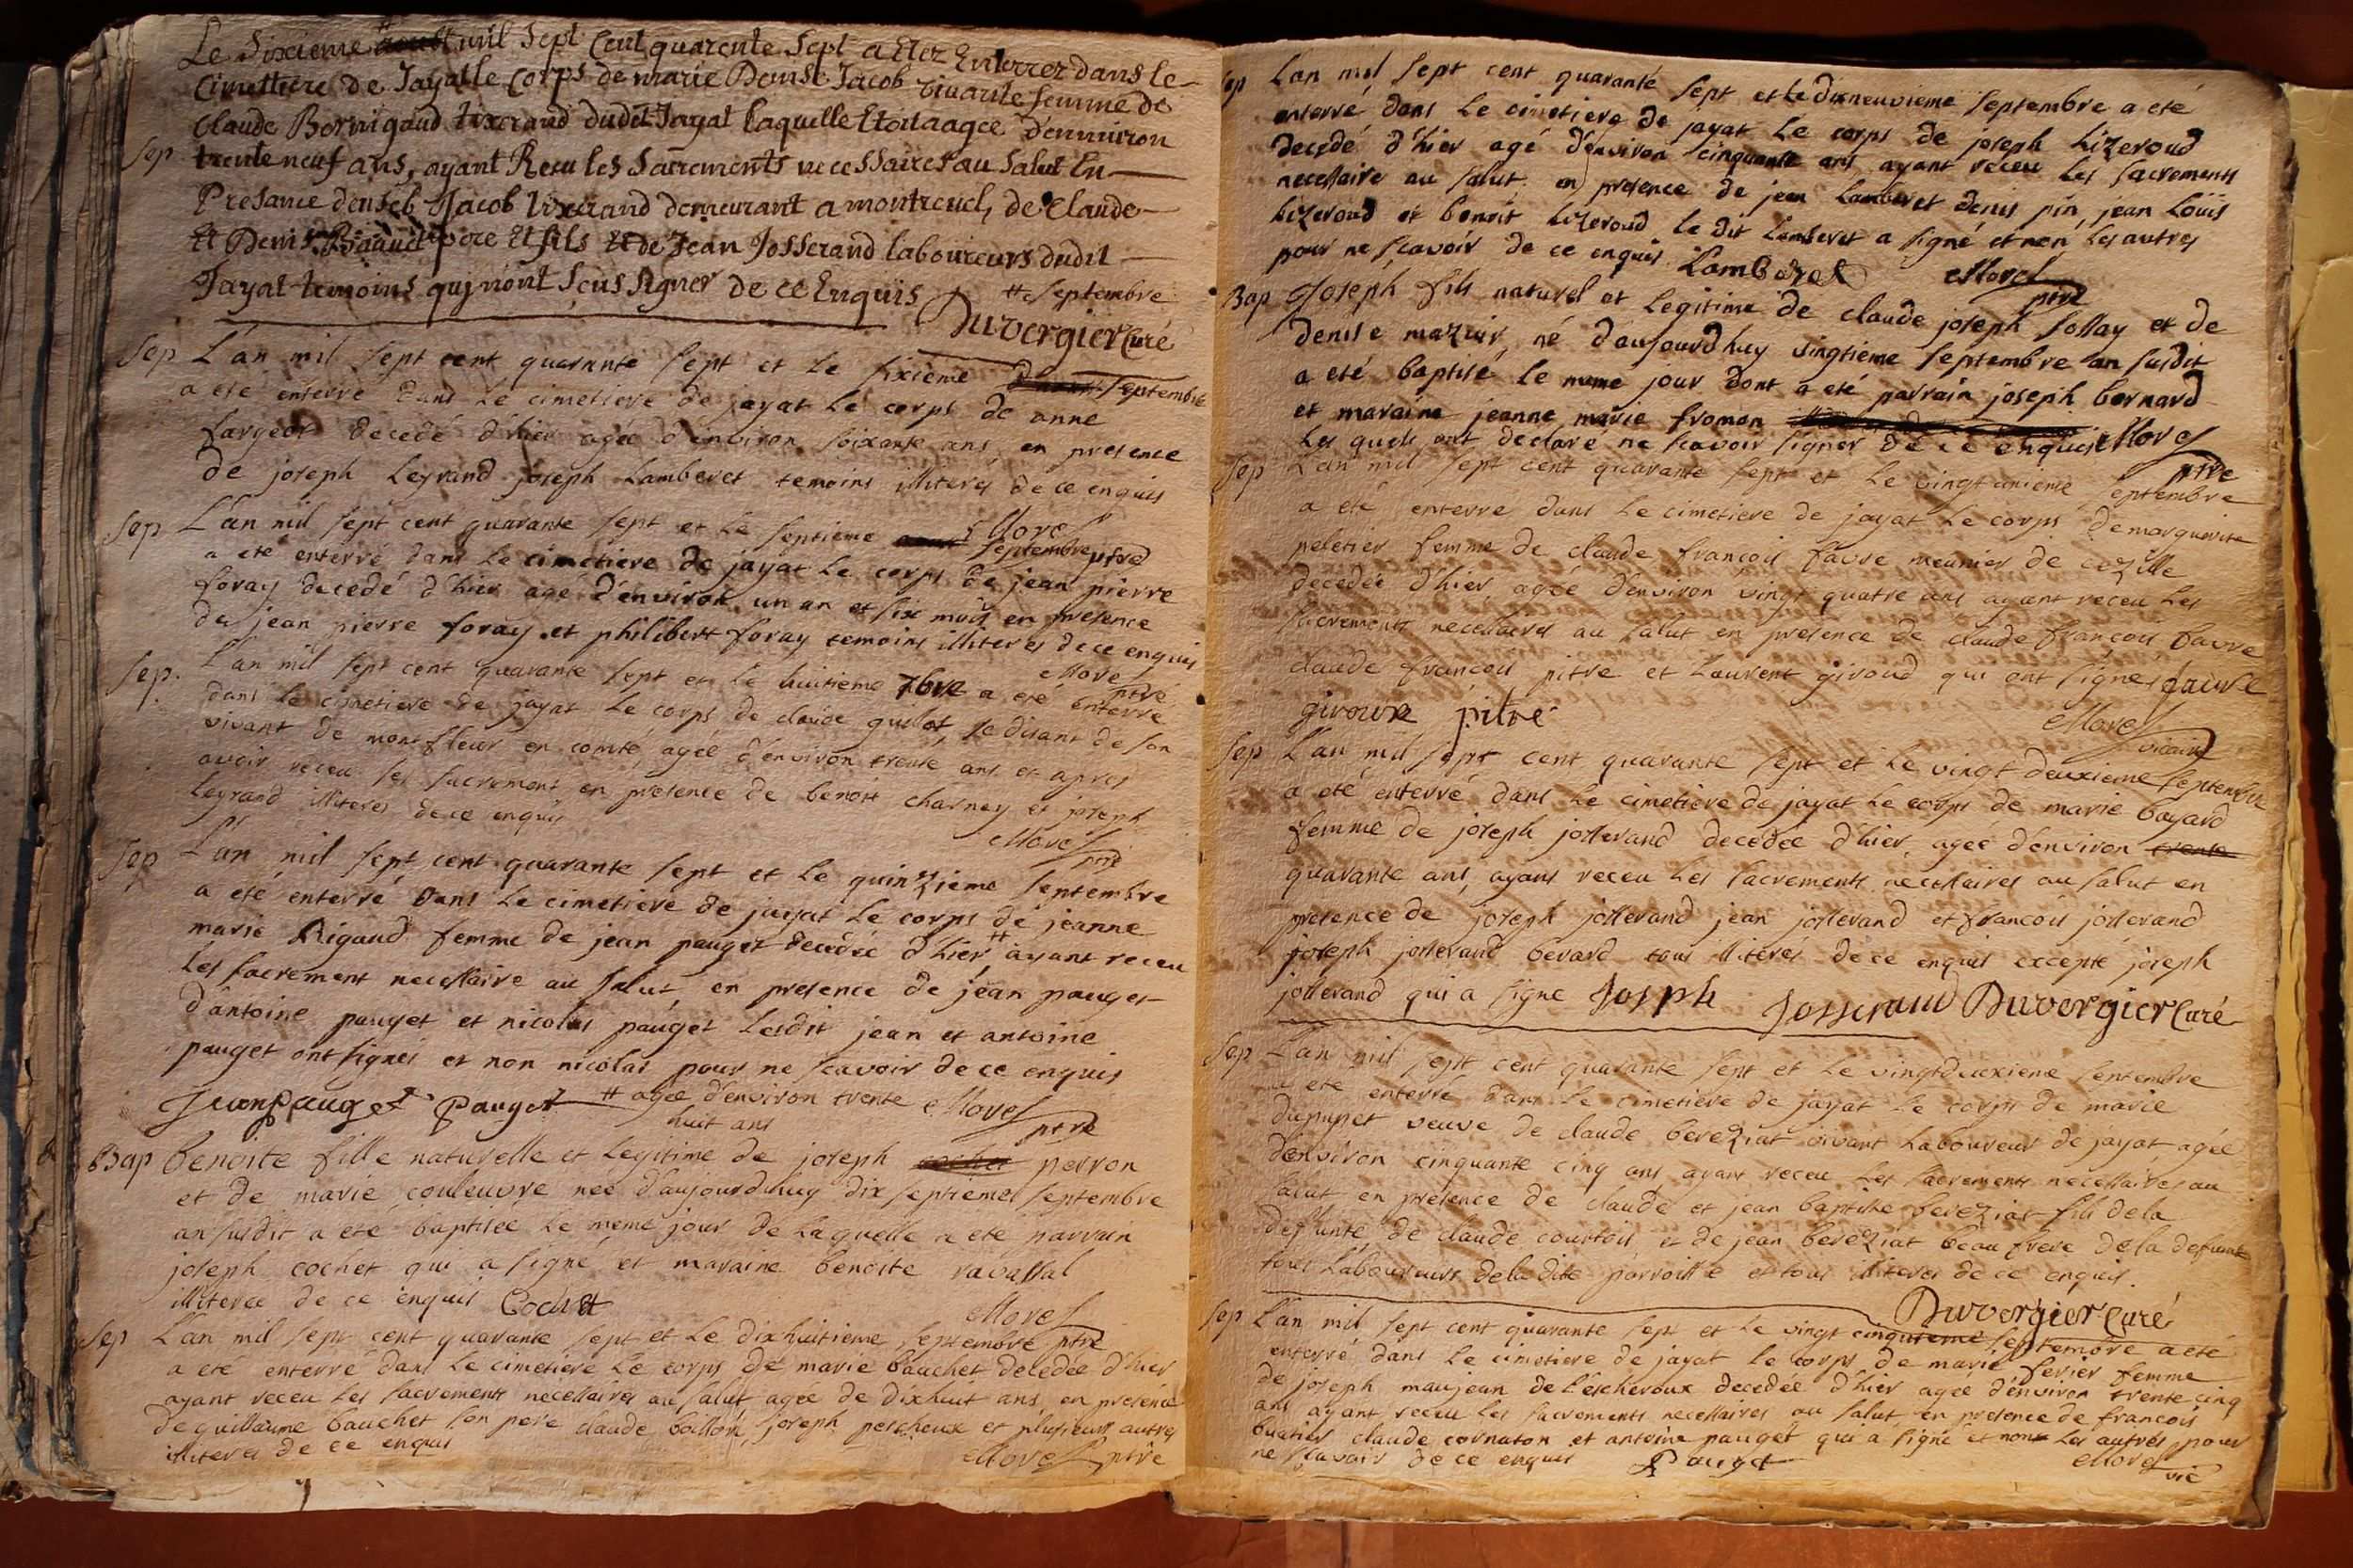 Le Sixcieme # aoust mil Sept Cent quarente Sept a Etez Enterrez dans le
Cimettiere de Jayat le Corps de marie Denise Jacob vivante femme de
Claude Bornigaud tixerand dudit Jayat laquelle Etoit aagee d'enmiron
Sep trente neuf ans, ayant Recu les Sacrements necessaires au Salut En
Presance denseb Jacob tixerand demeurant a montreuel, de Claude
Et Denis père Et fils Et de Jean Josserand laboureurs dudit
Jayat temoins qui n'ont Sçu Signer de ce Enquis # Septembre
Duvergier Curé
Sep L'an mil sept cent quarante sept et le sixieme d'aoust septembre
a eté enterré dans le cimetiere de jayat le corps de anne
fargeot decedé d'hier agée d'environ soixante ans en presence
de joseph Legrand joseph Lamberet temoins illiteres de ce enquis
Morel ptre
Sep L'an mil sept cent quarante sept et le septieme aoust septembre
a eté enterré dans le cimetiere de jayat le corps de jean pierre
foray decedé d'hier agé d'environ un an et six mois en presence
de jean pierre foray et philibert foray temoins illiteres de ce enquis
Morel ptre
Sep. L'an mil sept cent quarante sept et le huitieme 7bre a eté enterré
dans le cimetiere de jayat le corps de claude guillot, se disant de son
vivant de montfleur en comté, agéé d'environ trente ans et apres
avoir receu les sacrement en presence de benoit charney et joseph
legrand illiteres de ce enquis
Morel ptre
Sep L'an mil sept cent quarante sept et le quinzieme septembre
a eté enterré dans le cimetiere de jayat le corps de jeanne
marie Rigaud femme de jean pauget decedée d'hier # ayant receu
les sacrement necessaire au salut en presence de jean pauget
d'antoine pauget et nicolas pauget lesdit jean et antoine
pauget ont signés et non nicolas pour ne scavoir de ce enquis
Jean pauget Pauget # agée d'environ trente Morel ptre
huit ans
Bap benoite fille naturelle et legitime de joseph cochet perron
et de marie couleuvre neé d'aujourdhuy dix septieme septembre
an susdit a eté baptisée le meme jour de laquelle a eté parrain
joseph cochet qui a signé et maraine benoite ravassal
illiteree de ce enquis Cochet
Morel ptre
Sep L'an mil sept cent quarante sept et le dixhuitieme septembre
a eté enterré dans le cimetiere le corps de marie bauchet decedée d'hier
ayant receu les sacrements necessaires au salut agée de dixhuit ans en presence
de guillaume bauchet son pere claude joseph percheux et plusieurs autres
illiteres de ce enquis Morel ptre
Sep L'an mil sept cent quarante sept et le dixneuvieme septembre a eté
enterré dans le cimetiere de jayat le corps de joseph Lizeroud
decedé d'hier agé d'environ cinquante ans ayant receu les sacrements
necessaire au salut en presence de jean Lamberet denis pin, jean Louis
Lizeroud et benoit Lizeroud le dit Lamberet a signé et non les autres
pour ne scavoir de ce enquis Lamberet Morel ptre
Bap Joseph fils naturel et legitime de claude joseph sollay et de
denise mazuir né d'aujourdhuy vingtieme septembre an susdit
a eté baptisé le meme jour dont a eté parrain joseph bernard
et maraine jeanne marie fromon
les quels ont declaré ne scavoir signer de ce enquis Morel ptre
Sep L'an mil sept cent quarante sept et le vingt unieme septembre
a eté enterré dans le cimetiere de jayat le corps de marguerite
peletier femme de claude francois favre meunier de cezille
decedée d'hier, agée d'environ vingt quatre ans ayant receu les
sacrements necessaires au salut en presence de claude francois favre
claude francois pitre et Laurent giroud qui ont signes favre
giroux pitre
Morel vicaire
Sep L'an mil sept cent quarante sept et le vingt deuxieme septembre
a eté enterré dans le cimetiere de jayat le corps de marie bayard
femme de joseph josserand decedée d'hier, agée d'environ trente
quarante ans, ayant receu les sacrements necessaires au salut en
presence de joseph josserand jean josserand et francois josserand
joseph josserand berard tous illiterés de ce enquis excepté joseph
josserand qui a signé Joseph Josserand Duvergier Curé
Sep L'an mil sept cent quarante sept et le vingtdeuxieme septembre
a eté enterré dans le cimetiere de jayat le corps de marie
dupupet veuve de claude bereziat vivant Laboureur de jayat, agée
d'environ cinquante cinq ans ayant receu les sacrements necessaires au
salut en presence de claude et jean baptiste bereziat fils de la
defunte de claude courtois et de jean bereziat beau frere de la defunte
tous Laboureurs de la dite parroisse et tous illiteres de ce enquis.
Duvergier Curé
Sep L'an mil sept cent quarante sept et le vingt cinquieme septembre a eté
enterré dans le cimetiere de jayat le corps de marie ferier femme
de joseph maujean de l'escheroux decedée d'hier agée d'environ trente cinq
ans ayant receu les sacrements necessaires au salut en presence de francois
buatier claude cornaton et antoine pauget qui a signé et non les autres pour
ne scavoir de ce enquis Pauget Morel vic